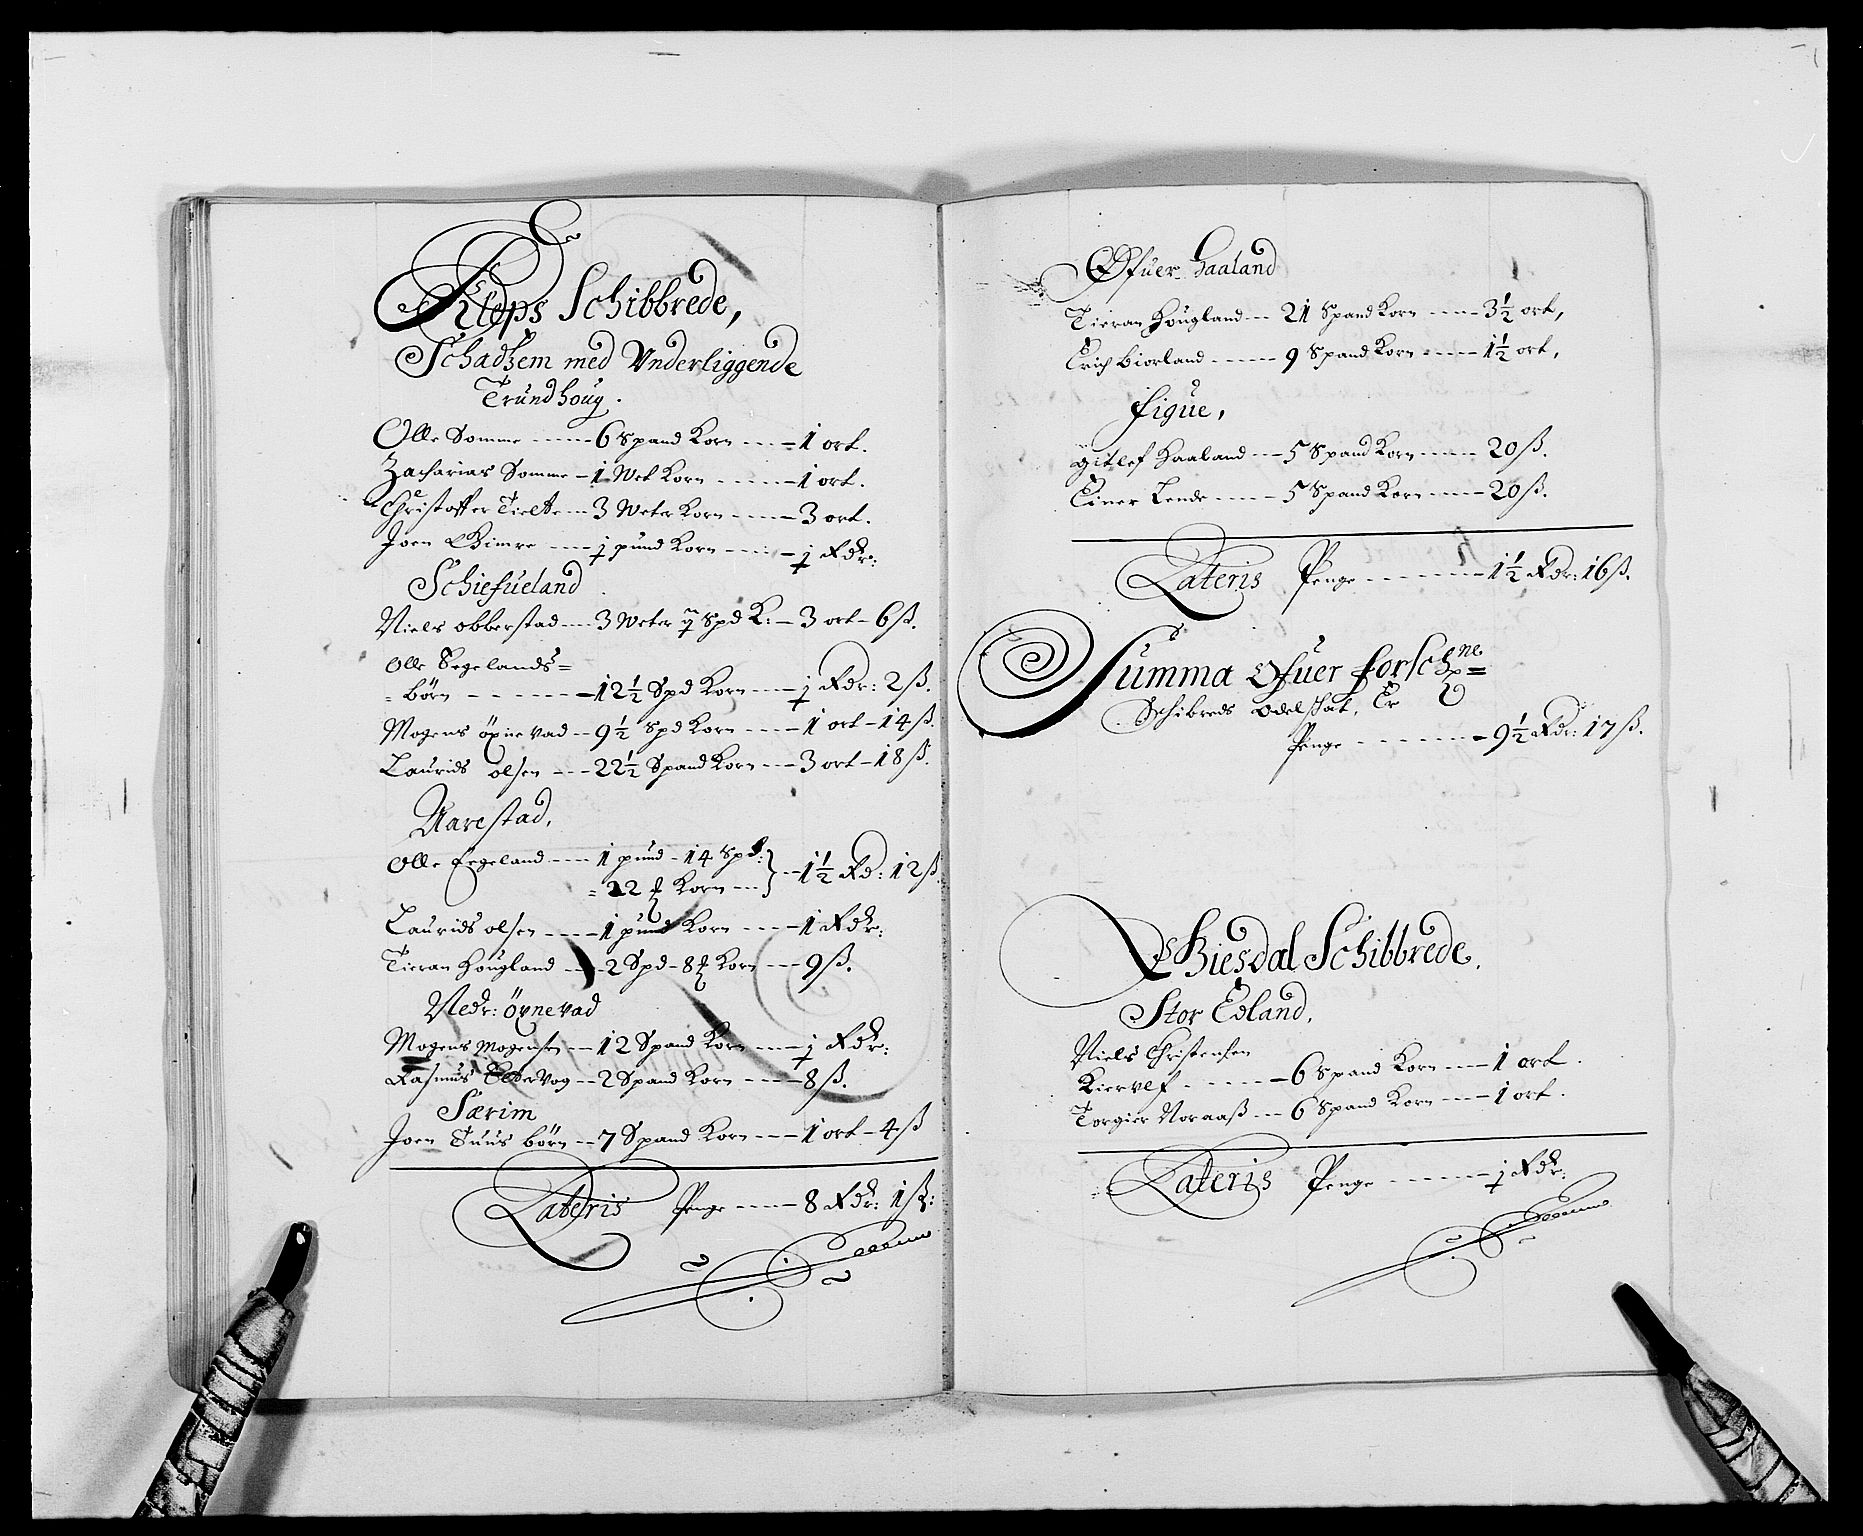 Kleps Schibbrede,
Schadhem med Underliggende
Trundhoug.
Olle Somme ---- 6 Spand Korn --- 1 ort.
Zacharias Somme - 1 Wet Korn ---- 1 ort.
Christoffer Tielte -- 3 Weter Korn ---- 3 ort.
Joen Gimre --- 1 pund Korn --- 1 Rdr:
Schiefueland
Niels obberstad --- 3 Weter 7 Spd K: - 3 ort - 6 ß.
Olle Segelands=
= börn - - - - - - 12½ Spd Korn --- 1 Rdr: 2 ß.
Mogens öxnevad -- 9½ Spd Korn ---- 1 ort - 14 ß.
Laurids olsen --- 22½ Spand Korn --- 3 ort - 18 ß.
Aarestad,
Olle Eegeland ---- 1 pund - 14 Spd:
= 22 Korn --- } -- 1½ Rd: 12 ß.
Laurids olsen ---- 1 pund Korn --- 1 Rdr:
Tieran Hougland --- 2 Spd - 8 Korn --- 9 ß.
Nedr: öxnevad
Mogens Mogensen -- 12 Spand Korn ---- 1 Rdr:
Rasmus -- 2 Spand Korn ---- 8 ß.
Særim
Joen Tuus börn -- 7 Spand Korn --- 1 ort - 4 ß
Lateris Penge ---- 8 Rdr: 1 ß:
Øfuer Haaland
Tieran Hougland -- 21 Spand Korn ---- 3½ ort,
Erich Biorland ----- 9 Spand Korn ---- 1½ ort,
Figue,
Gitlef Haaland --- 5 Spand Korn ---- 20 ß.
Einer Lende ---- 5 Spand Korn ---- 20 ß.
Lateris Penge - - - - - - - 1½ Rdr: 16 ß.
Summa Ofuer forschne=
Schibreds Odelschat, Er
Penge - - - - - - - 9½ Rdr: 17 ß.
Giesdal Schibbrede.
Stor Edland,
Niels Christensen
Kiervlf - - - - - 6 Spand Korn --- 1 ort.
Torgier Noraaß --- 6 Spand Korn --- 1 ort.
Lateris Penge ------ 1 Rdr: